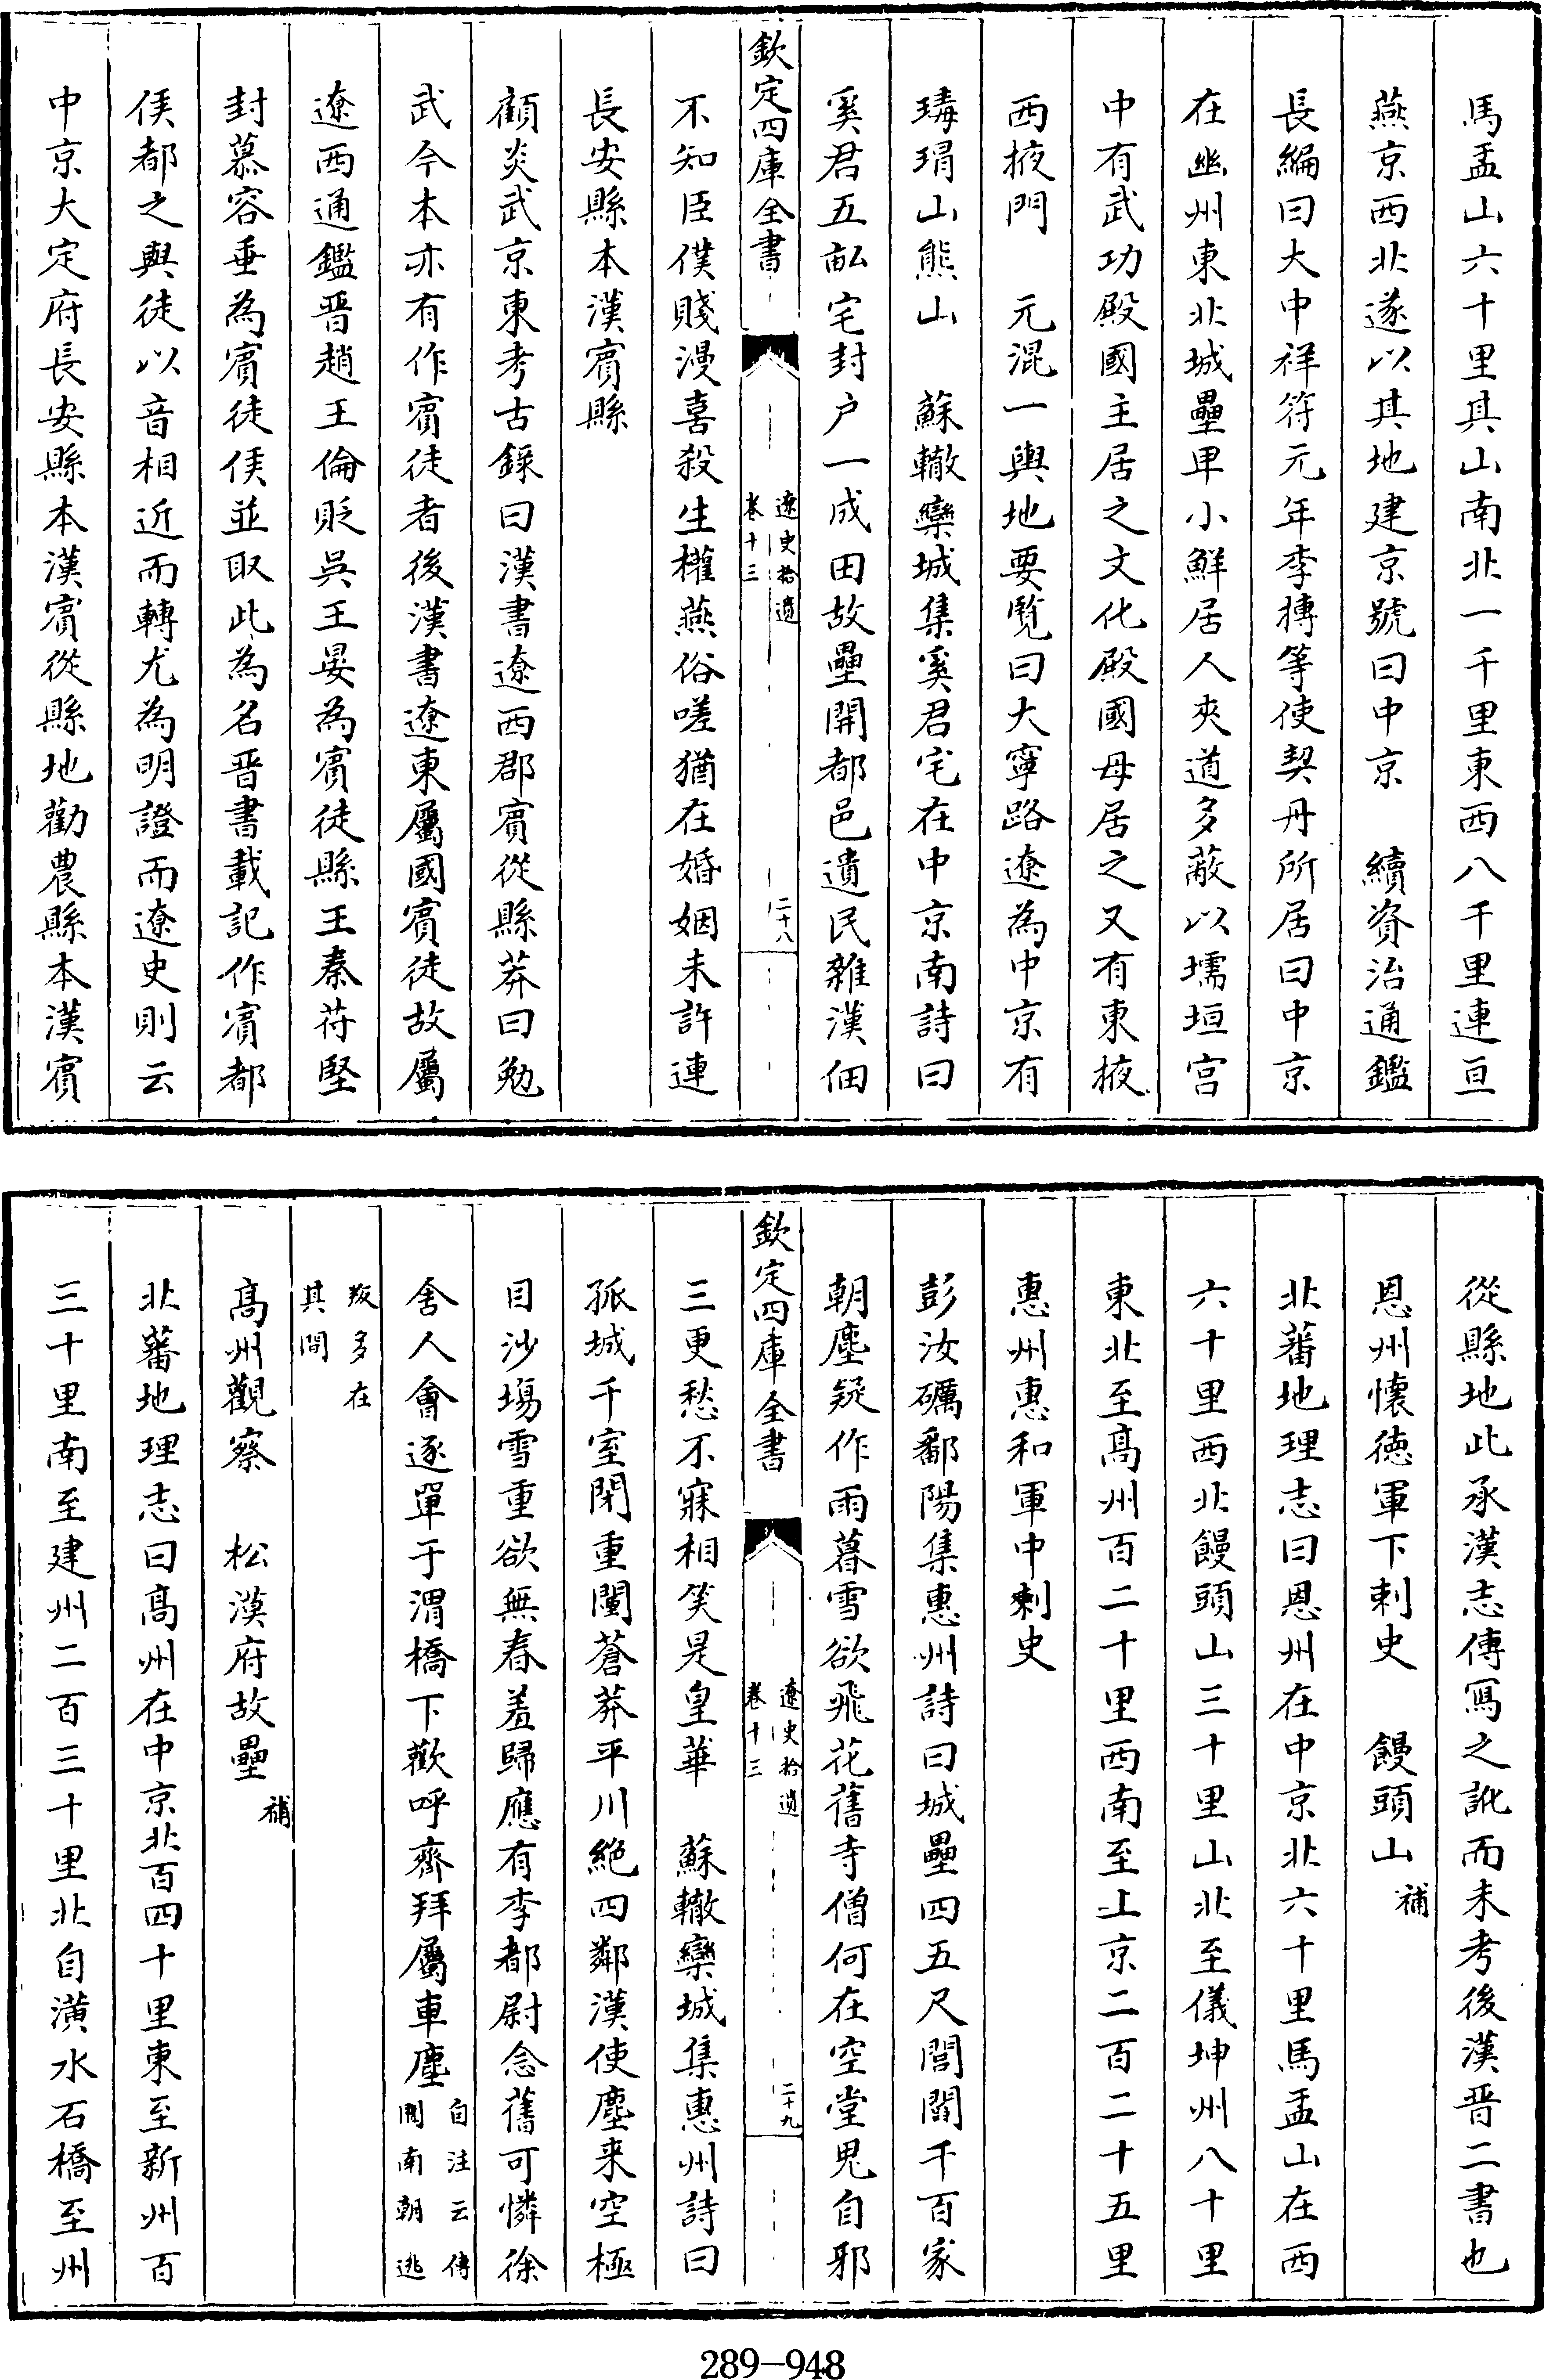 馬盂山六十里其山南北一千里東西八千里連亘
燕京西北遂以其地建京號曰中京　續資治通鑑
長編曰大中祥符元年李摶等使契丹所居曰中京
在幽州東北城壘卑小鮮居人夾道多蔽以壖垣宫
中有武功殿國主居之文化殿國母居之又有東掖
西掖門　元混一輿地要覧曰大寧路遼為中京有
瑇瑁山熊山　蘇轍欒城集奚君宅在中京南詩曰
奚君五畝宅封户一成田故壘開都邑遺民雜漢佃
欽定四庫全書
遼史拾遺
卷十三
二十八
不知臣僕賤漫喜殺生權燕俗嗟猶在婚姻未許連
長安縣本漢賔縣
顧炎武京東考古録曰漢書遼西郡賔從縣莽曰勉
武今本亦有作賔徒者後漢書遼東屬國賔徒故屬
遼西通鑑晋趙王倫貶吳王晏為賔徒縣王秦苻堅
封慕容垂為賔徒侯並取此為名晋書載記作賔都
侯都之與徒以音相近而轉尤為明證而遼史則云
中京大定府長安縣本漢賔從縣地勸農縣本漢賔
從縣地此承漢志傳寫之訛而未考後漢晋二書也
恩州懷徳軍下刺史　饅頭山補
北蕃地理志曰恩州在中京北六十里馬盂山在西
六十里西北饅頭山三十里山北至儀坤州八十里
東北至髙州百二十里西南至上京二百二十五里
惠州惠和軍中刺史
彭汝礪鄱陽集惠州詩曰城壘四五尺閭閻千百家
朝塵疑作雨暮雪欲飛花舊寺僧何在空堂鬼自邪
欽定四庫全書
遼史拾遺
卷十三
二十九
三更愁不寐相笑是皇華　蘇轍欒城集惠州詩曰
孤城千室閉重闉蒼莽平川絶四鄰漢使塵来空極
目沙塲雪重欲無春羞歸應有李都尉念舊可憐徐
舍人會逐單于渭橋下歡呼齊拜屬車塵自注云傳聞南朝逃
叛多在其間
髙州觀察　松漠府故壘補
北蕃地理志曰髙州在中京北百四十里東至新州百
三十里南至建州二百三十里北自潢水石橋至州
289-948